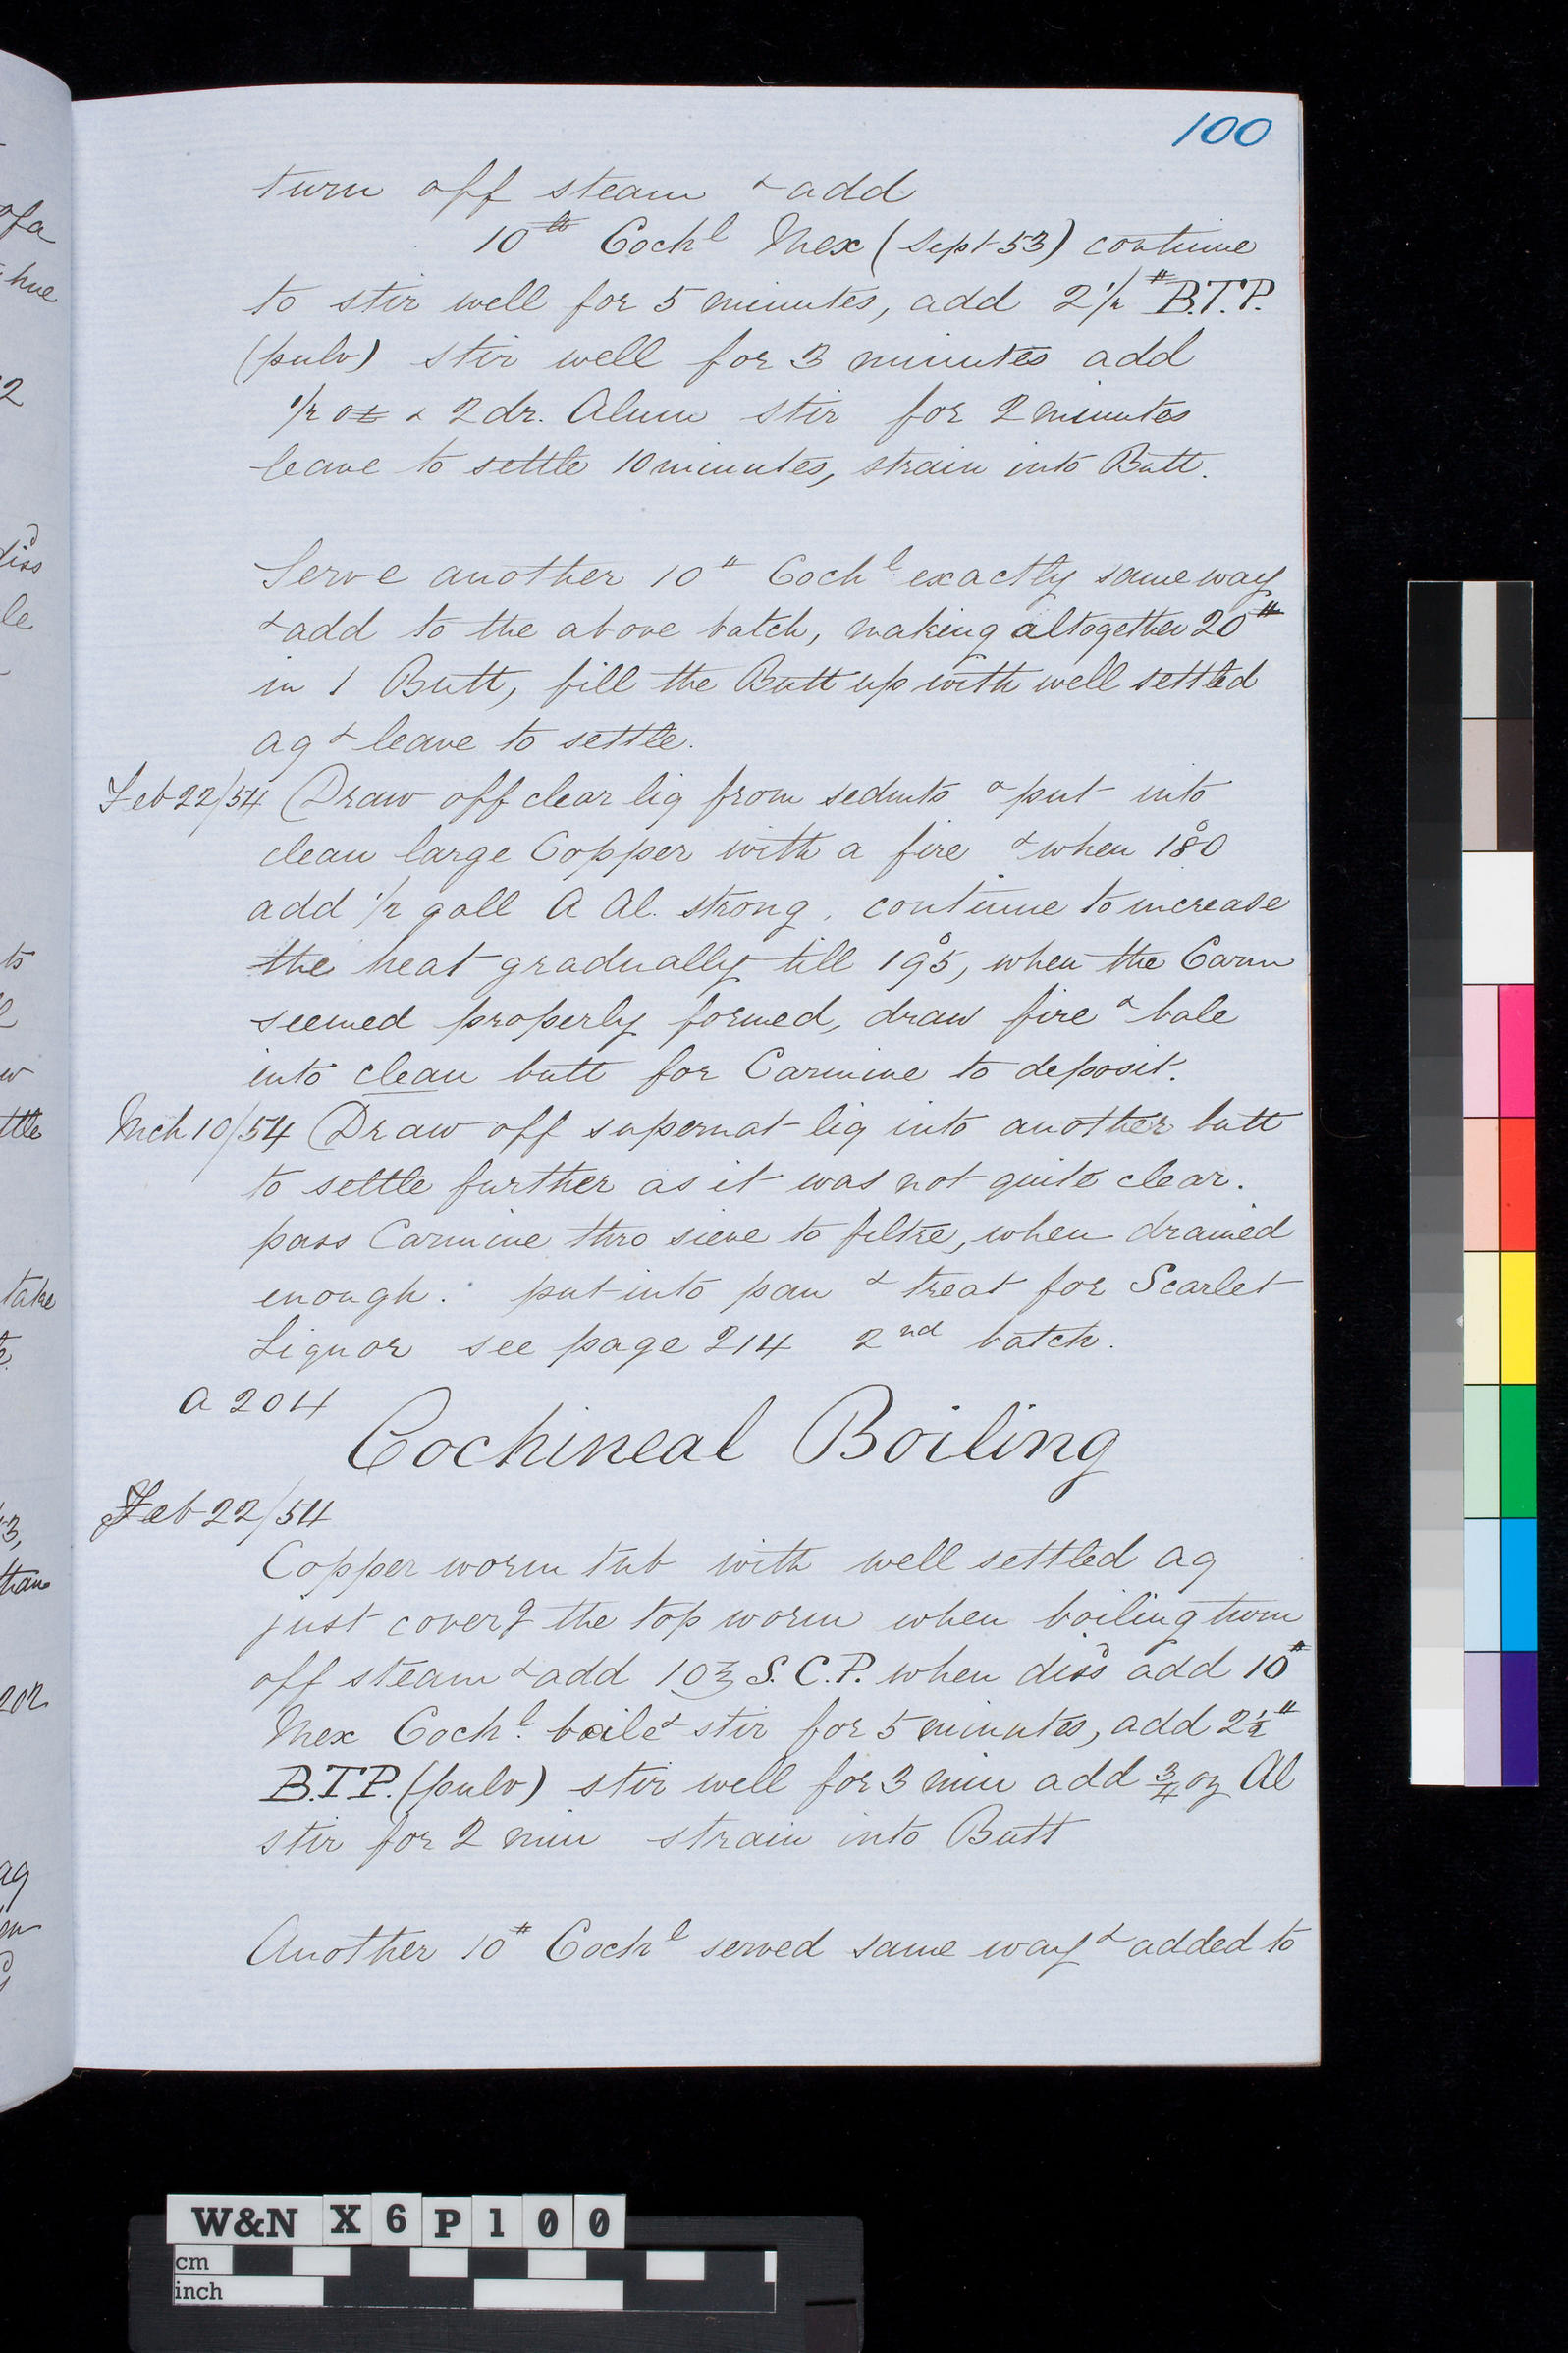 100
turn off steam & add
10 lb Cochl Mex (Sept 53) continue
to stir well for 5 minutes, add 2 1/2 # B.T.P.
(pulv) stir well for 3 minutes add
1/2 oz & 2 dr. Alum stir for 2 minutes
leave to settle 10 minutes, strain into Butt.
Serve another 10 # Cochl. exactly same way
& add to the above batch, making altogether 20 #
in 1 Butt, fill the Butt up with well settled
aq & leave to settle.
Feb 22/54 Draw off clear liq from sedmts & put into
clean large Copper with a fire & when 180°
add 1/2 gall A Al. strong, continue to increase
the heat gradually till 195°, when the Carm
seemed properly formed, draw fire & bale
into clean butt for Carmine to deposit.
Mch 10/54 Draw off supernat liq into another butt
to settle further as it was not quite clear.
pass Carmine thro sieve to filtre, when drained
enough. put into pan & treat for Scarlet
Liquor see page 214 2nd batch.
A 204
Cochineal Boiling
Feb 22/54
Copper worm tub with well settled aq
just coverg the top worm when boiling turn
off steam & add 10 ʒ S.C.P. when dissd add 10 #
Mex Cochl. boile & stir for 5 minutes, add 2 1/2 #
B.T.P. (pulv) stir well for 3 min add 3/4 oz Al
stir for 2 min strain into Butt
Another 10 # Cochl served same way & added to
W&N X 6 P 1 0 0
cm
inch